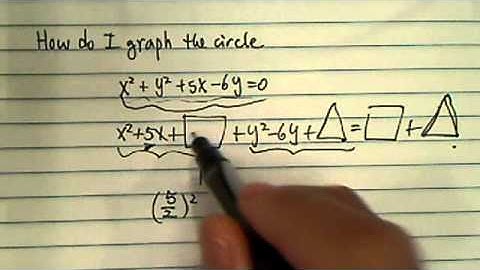 How do I graph the circle
x² + y² + 5x - 6y = 0
x² + 5x + □ + y² - 6y + △ = □ + △
(5/2)²